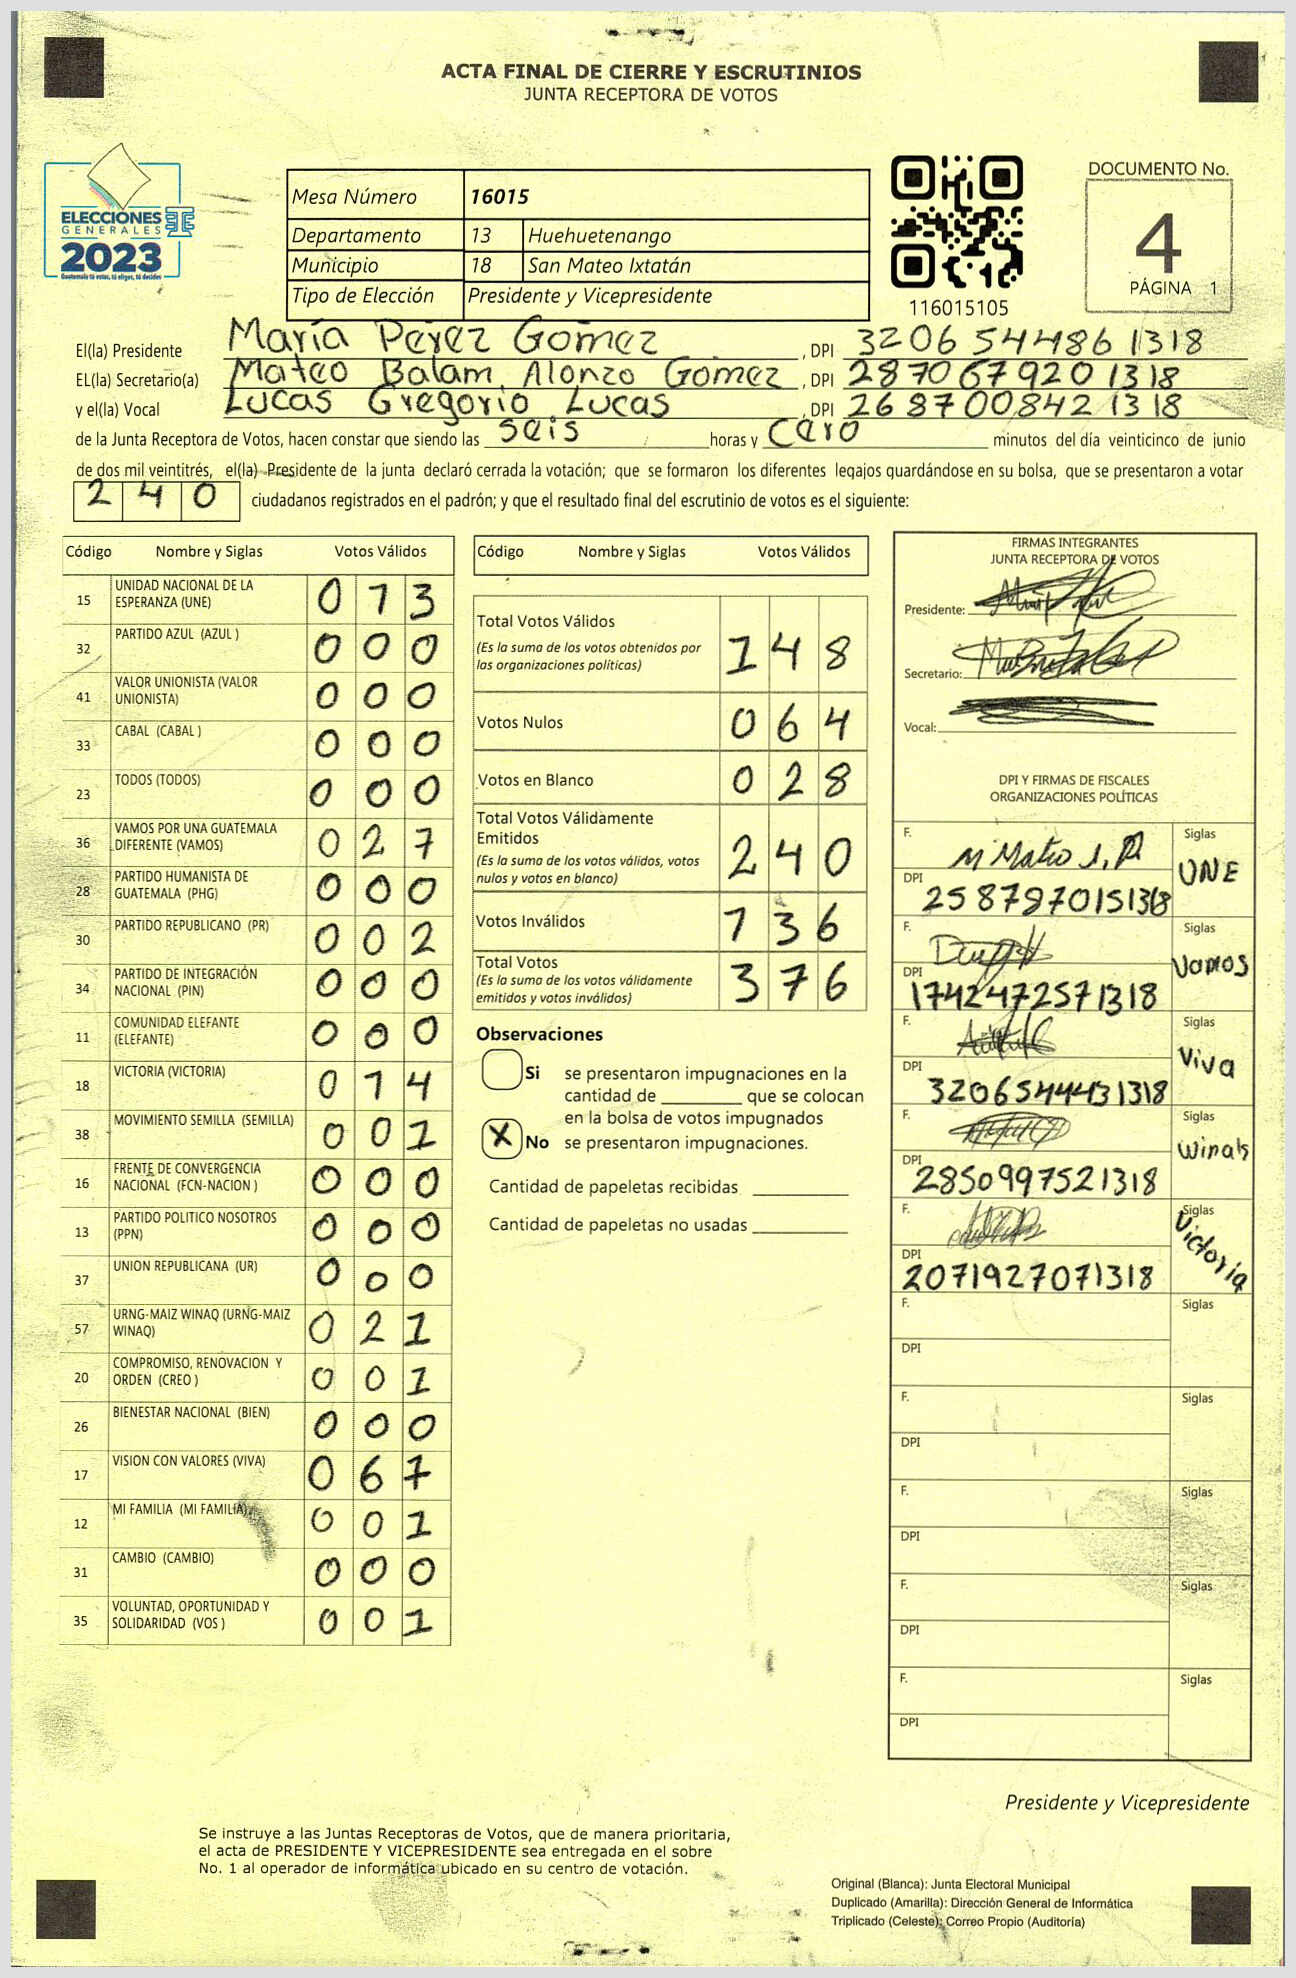 ACTA FINAL DE CIERRE Y ESCRUTINIOS
JUNTA RECEPTORA DE VOTOS
ELECCIONES
GENERALES
2023
Guatemala tú votas, tú eliges, tú decides
Mesa Número 16015
Departamento 13 Huehuetenango
Municipio 18 San Mateo Ixtatán
Tipo de Elección Presidente y Vicepresidente
116015105
DOCUMENTO No.
4
PÁGINA 1
El(la) Presidente María Perez Gomez, DPI 3206 54486 1318
EL(la) Secretario(a) Mateo Balam Alonzo Gomez, DPI 2870679201318
y el(la) Vocal Lucas Gregorio Lucas, DPI 2687008421318
de la Junta Receptora de Votos, hacen constar que siendo las seis horas y cero minutos del día veinticinco de junio
de dos mil veintitrés, el(la) Presidente de la junta declaró cerrada la votación; que se formaron los diferentes legajos guardándose en su bolsa, que se presentaron a votar
240 ciudadanos registrados en el padrón; y que el resultado final del escrutinio de votos es el siguiente:
Código Nombre y Siglas Votos Válidos
15 UNIDAD NACIONAL DE LA ESPERANZA (UNE) 0 1 3
32 PARTIDO AZUL (AZUL ) 0 0 0
41 VALOR UNIONISTA (VALOR UNIONISTA) 0 0 0
33 CABAL (CABAL ) 0 0 0
23 TODOS (TODOS) 0 0 0
36 VAMOS POR UNA GUATEMALA DIFERENTE (VAMOS) 0 2 7
28 PARTIDO HUMANISTA DE GUATEMALA (PHG) 0 0 0
30 PARTIDO REPUBLICANO (PR) 0 0 2
34 PARTIDO DE INTEGRACIÓN NACIONAL (PIN) 0 0 0
11 COMUNIDAD ELEFANTE (ELEFANTE) 0 0 0
18 VICTORIA (VICTORIA) 0 1 4
38 MOVIMIENTO SEMILLA (SEMILLA) 0 0 1
16 FRENTE DE CONVERGENCIA NACIONAL (FCN-NACION ) 0 0 0
13 PARTIDO POLITICO NOSOTROS (PPN) 0 0 0
37 UNION REPUBLICANA (UR) 0 0 0
57 URNG-MAIZ WINAQ (URNG-MAIZ WINAQ) 0 2 1
20 COMPROMISO, RENOVACION Y ORDEN (CREO ) 0 0 1
26 BIENESTAR NACIONAL (BIEN) 0 0 0
17 VISION CON VALORES (VIVA) 0 6 7
12 MI FAMILIA (MI FAMILIA) 0 0 1
31 CAMBIO (CAMBIO) 0 0 0
35 VOLUNTAD, OPORTUNIDAD Y SOLIDARIDAD (VOS ) 0 0 1
Código Nombre y Siglas Votos Válidos
Total Votos Válidos
(Es la suma de los votos obtenidos por
las organizaciones políticas) 1 4 8
Votos Nulos 0 6 4
Votos en Blanco 0 2 8
Total Votos Válidamente
Emitidos
(Es la suma de los votos válidos, votos
nulos y votos en blanco) 2 4 0
Votos Inválidos 1 3 6
Total Votos
(Es la suma de los votos válidamente
emitidos y votos inválidos) 3 7 6
Observaciones
Si se presentaron impugnaciones en la
cantidad de que se colocan
en la bolsa de votos impugnados
X No se presentaron impugnaciones.
Cantidad de papeletas recibidas
Cantidad de papeletas no usadas
FIRMAS INTEGRANTES
JUNTA RECEPTORA DE VOTOS
Presidente:
Secretario:
Vocal:
DPI Y FIRMAS DE FISCALES
ORGANIZACIONES POLÍTICAS
F. Siglas UNE
DPI 2587970151318
F. Siglas Vamos
DPI 1742472571318
F. Siglas Viva
DPI 3206544431318
F. Siglas Winak
DPI 2850997521318
F. Siglas Victoria
DPI 2071927071318
F. Siglas
DPI
F. Siglas
DPI
F. Siglas
DPI
F. Siglas
DPI
F. Siglas
DPI
Presidente y Vicepresidente
Se instruye a las Juntas Receptoras de Votos, que de manera prioritaria,
el acta de PRESIDENTE Y VICEPRESIDENTE sea entregada en el sobre
No. 1 al operador de informática ubicado en su centro de votación.
Original (Blanca): Junta Electoral Municipal
Duplicado (Amarilla): Dirección General de Informática
Triplicado (Celeste): Correo Propio (Auditoría)